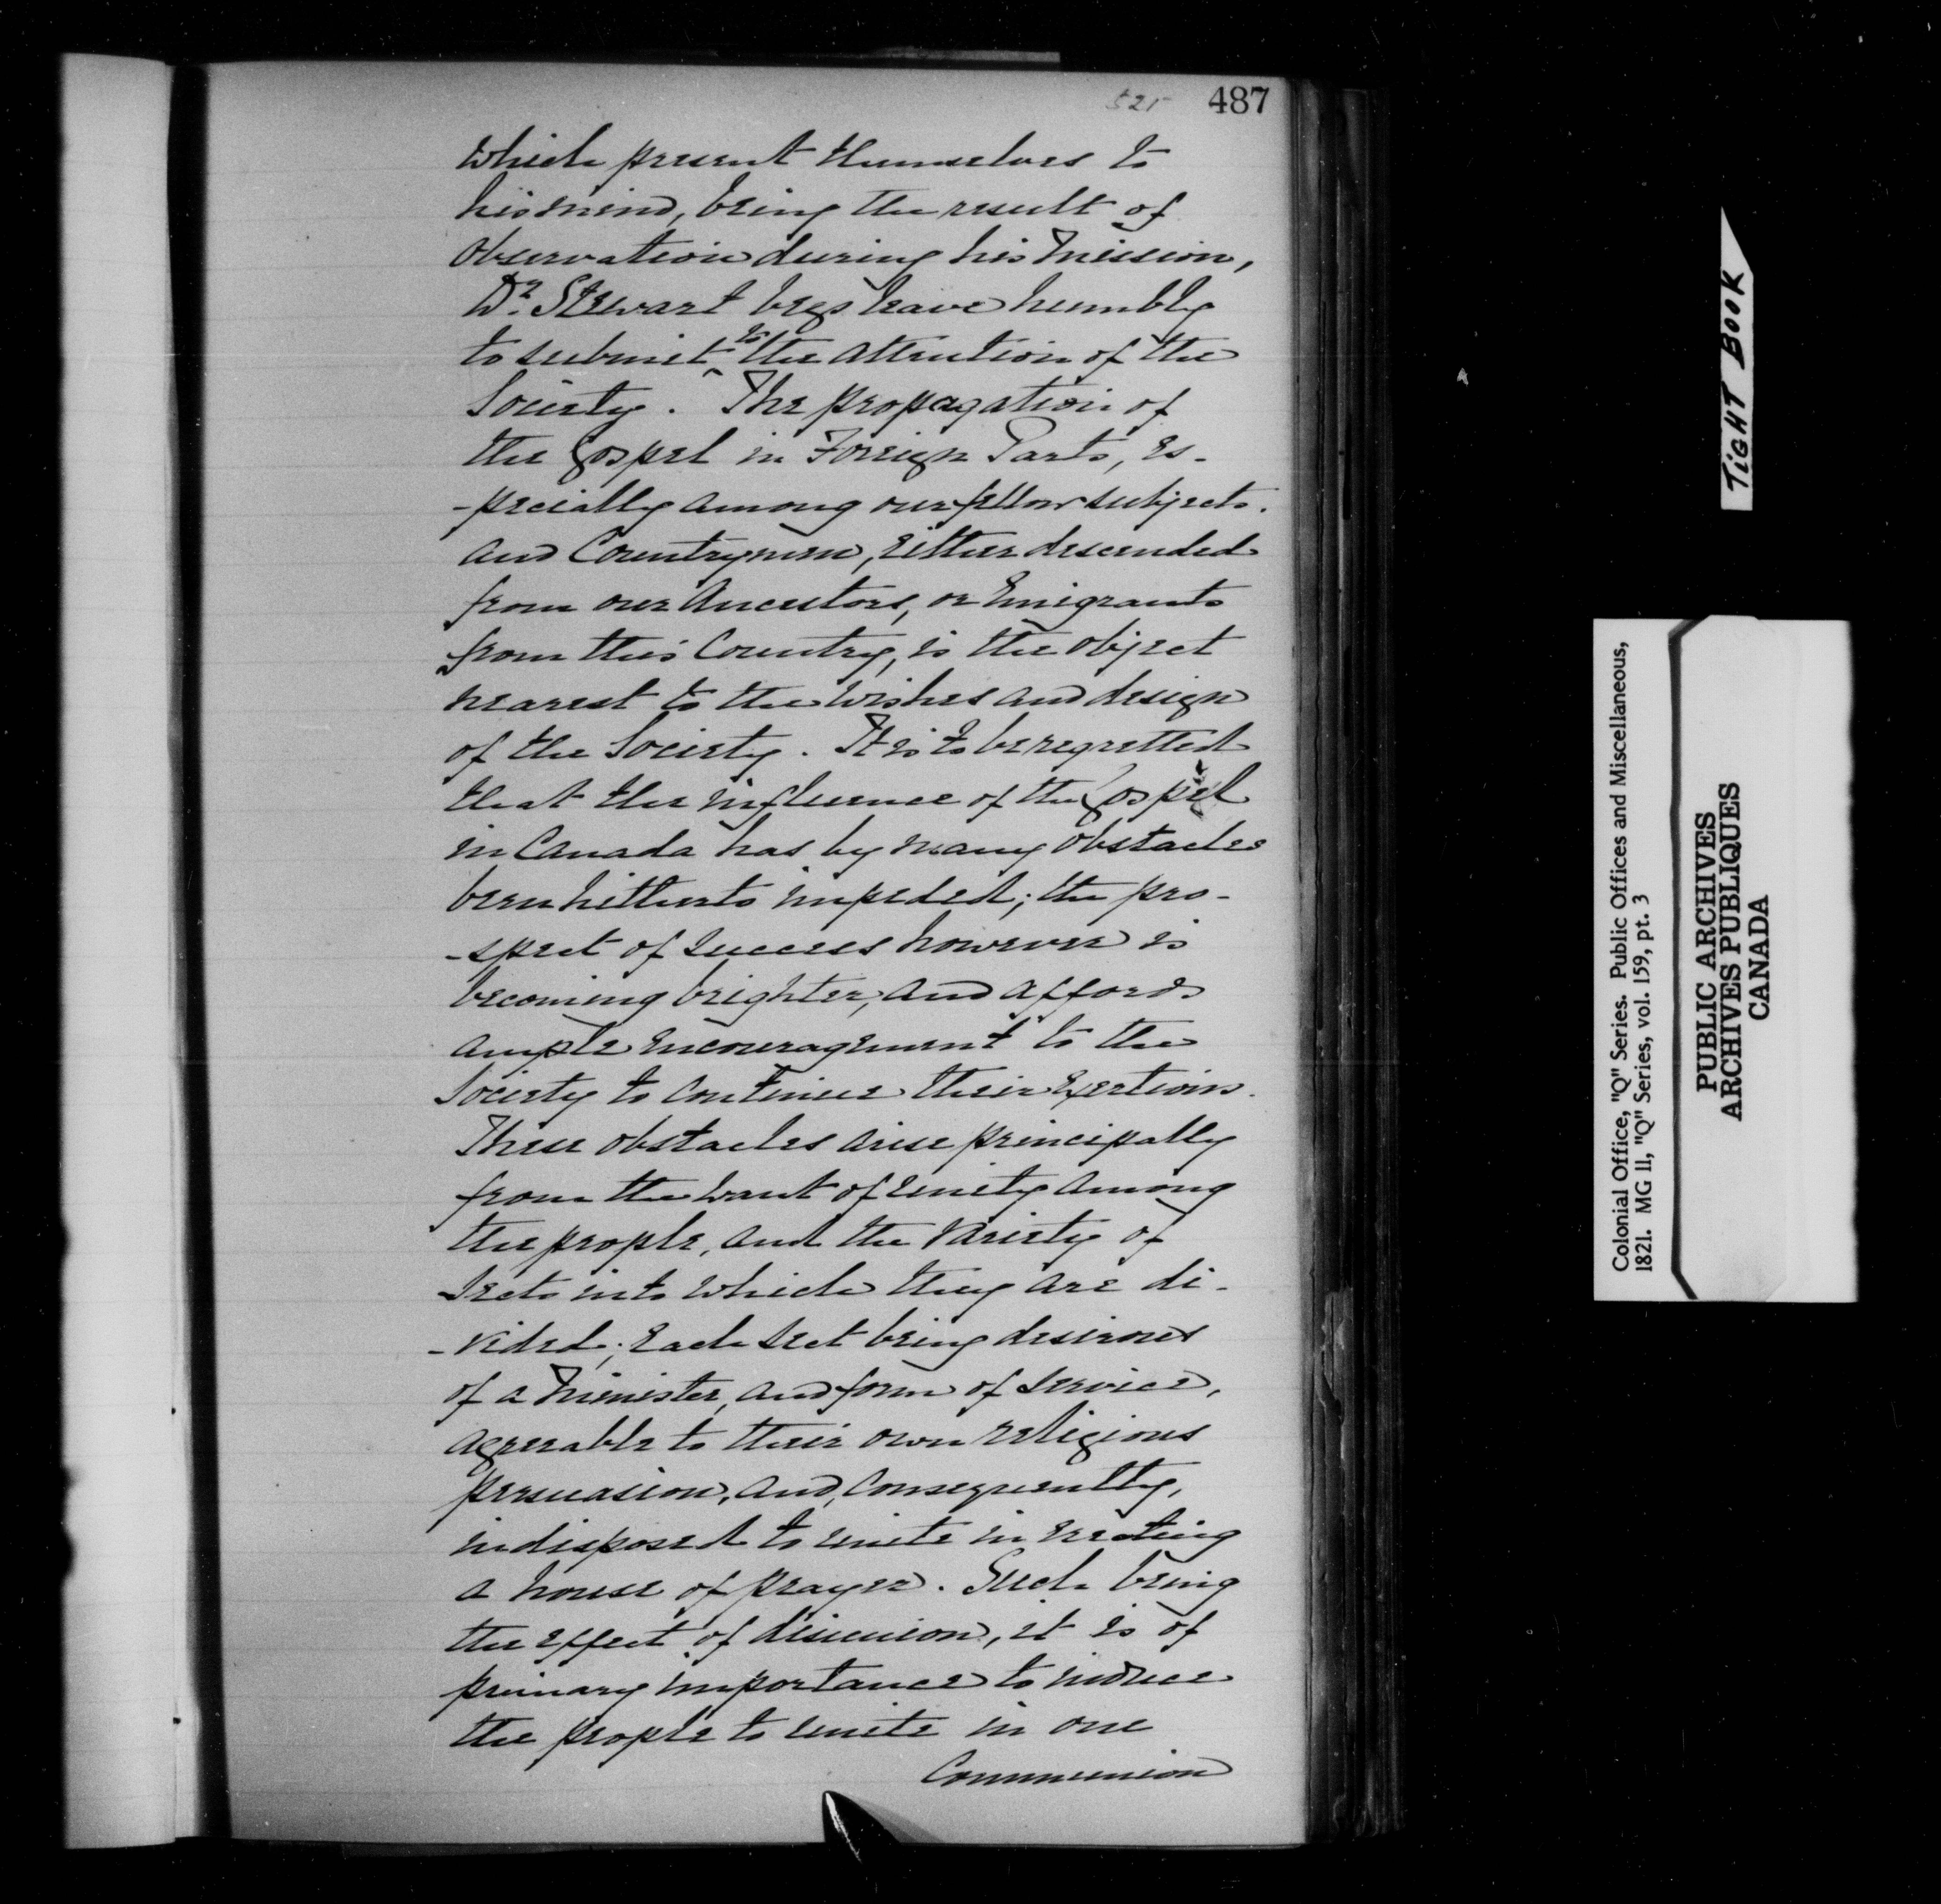 525 487
which present themselves to
his mind, being the result of
observation during his Mission,
Dr. Stewart begs leave humbly
to submit to the attention of the
Society. The propagation of
the Gospel in Foreign Parts, es-
-pecially among our fellow subjects.
and Countrymen, either descended
from our Ancestors, or Emigrants
from this Country, is the object
nearest to the wishes and design
of the Society. It is to be regretted
that the influence of the Gospel
in Canada has by many obstacles
been hitherto impeded; the pro-
-spect of success however is
becoming brighter, and affords
ample encouragement to the
Society to continue their Exertions.
These obstacles arise principally
from the want of unity among
the people, and the variety of
Sects into which they are di-
-vided; Each sect being desirous
of a Minister, and form of service,
agreeable to their own religious
persuasion, and, consequently,
indisposed to unite in erecting
a house of prayer. Such being
the effect of disunion, it is of
primary importance to induce
the people to unite in one
Communion
TIGHT BOOK
Colonial Office, "Q" Series. Public Offices and Miscellaneous,
1821. MG 11, "Q" Series, vol. 159, pt. 3
PUBLIC ARCHIVES
ARCHIVES PUBLIQUES
CANADA